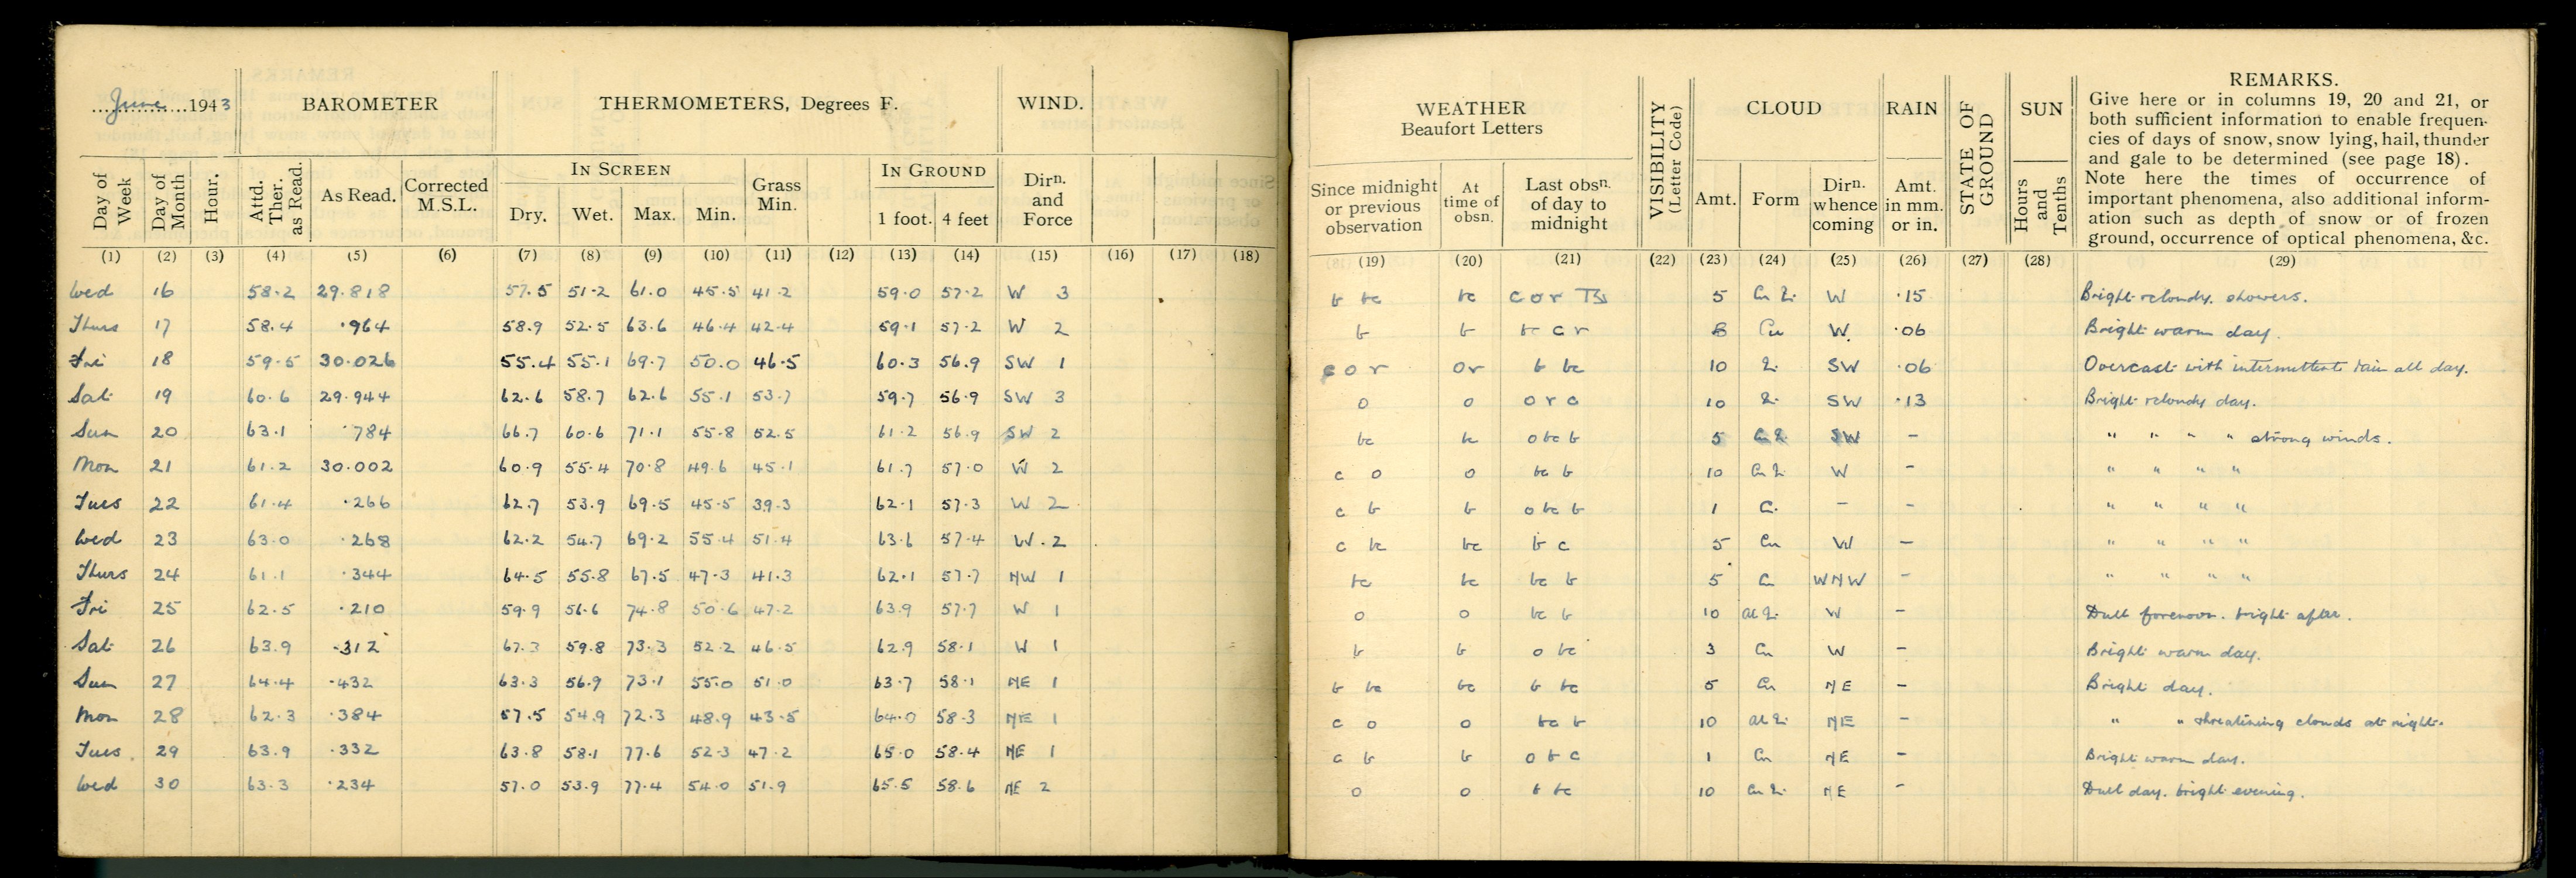 June 1943 BAROMETER THERMOMETERS, Degrees F. WIND.
Day of Week Day of Month Hour. Attd. Ther. as Read. As Read. Corrected M.S.L. IN SCREEN Dry. Wet. Max. Min. Grass Min. IN GROUND 1 foot. 4 feet Dirn. and Force
(1) (2) (3) (4) (5) (6) (7) (8) (9) (10) (11) (12) (13) (14) (15) (16) (17) (18)
Wed 16 58.2 29.818 57.5 51.2 61.0 45.5 41.2 59.0 57.2 W 3
Thurs 17 58.4 .964 58.9 52.5 63.6 46.4 42.4 59.1 57.2 W 2
Fri 18 59.5 30.026 55.4 55.1 69.7 50.0 46.5 60.3 56.9 SW 1
Sat 19 60.6 29.944 62.6 58.7 62.6 55.1 53.7 59.7 56.9 SW 3
Sun 20 63.1 .784 66.7 60.6 71.1 55.8 52.5 61.2 56.9 SW 2
Mon 21 61.2 30.002 60.9 55.4 70.8 49.6 45.1 61.7 57.0 W 2
Tues 22 61.4 .266 62.7 53.9 69.5 45.5 39.3 62.1 57.3 W 2
Wed 23 63.0 .268 62.2 54.7 69.2 55.4 51.4 63.1 57.4 W. 2
Thurs 24 61.1 .344 64.5 55.8 67.5 47.3 41.3 62.1 57.7 NW 1
Fri 25 62.5 .210 59.9 56.6 74.8 50.6 47.2 63.9 57.7 W 1
Sat 26 63.9 .312 67.3 59.8 73.3 52.2 46.5 62.9 58.1 W 1
Sun 27 64.4 .432 63.3 56.9 73.1 55.0 51.0 63.7 58.1 NE 1
Mon 28 62.3 .384 57.5 54.9 72.3 48.9 43.5 64.0 58.3 NE 1
Tues. 29 63.9 .332 63.8 58.1 77.6 52.3 47.2 65.0 58.4 NE 1
Wed 30 63.3 .234 57.0 53.9 77.4 54.0 51.9 65.5 58.6 NE 2
WEATHER Beaufort Letters VISIBILITY (Letter Code) CLOUD RAIN STATE OF GROUND SUN REMARKS.
Since midnight or previous observation At time of obsn. Last obsn. of day to midnight Amt. Form Dirn. whence coming Amt. in mm. or in. Hours and Tenths
Give here or in columns 19, 20 and 21, or
both sufficient information to enable frequen-
cies of days of snow, snow lying, hail, thunder
and gale to be determined (see page 18).
Note here the times of occurrence of
important phenomena, also additional inform-
ation such as depth of snow or of frozen
ground, occurrence of optical phenomena, &c.
(19) (20) (21) (22) (23) (24) (25) (26) (27) (28) (29)
b bc bc c o r 5 W .15 Bright & cloudy. showers.
b b bc r Cu W. .06 Bright warm day.
c o r or b bc 10 SW .06 Overcast with intermittent rain all day.
o o o r c 10 SW .13 Bright & cloudy day.
bc bc o bc b 5 SW - " " " " strong winds.
c o o bc b 10 W - " " " "
c b b o bc b 1 - - " " " "
c bc bc b c 5 Cu W - " " " "
bc bc bc b 5 Cu WNW - " " " "
o o bc b 10 W - Dull forenoon. bright after.
b b o bc 3 Cu W - Bright warm day.
b bc bc b bc 5 Cu NE - Bright day.
c o o bc b 10 NE - " " threatining clouds at night.
c b b o b c 1 Cu NE - Bright warm day.
o o b bc 10 NE - Dull day. bright evening.